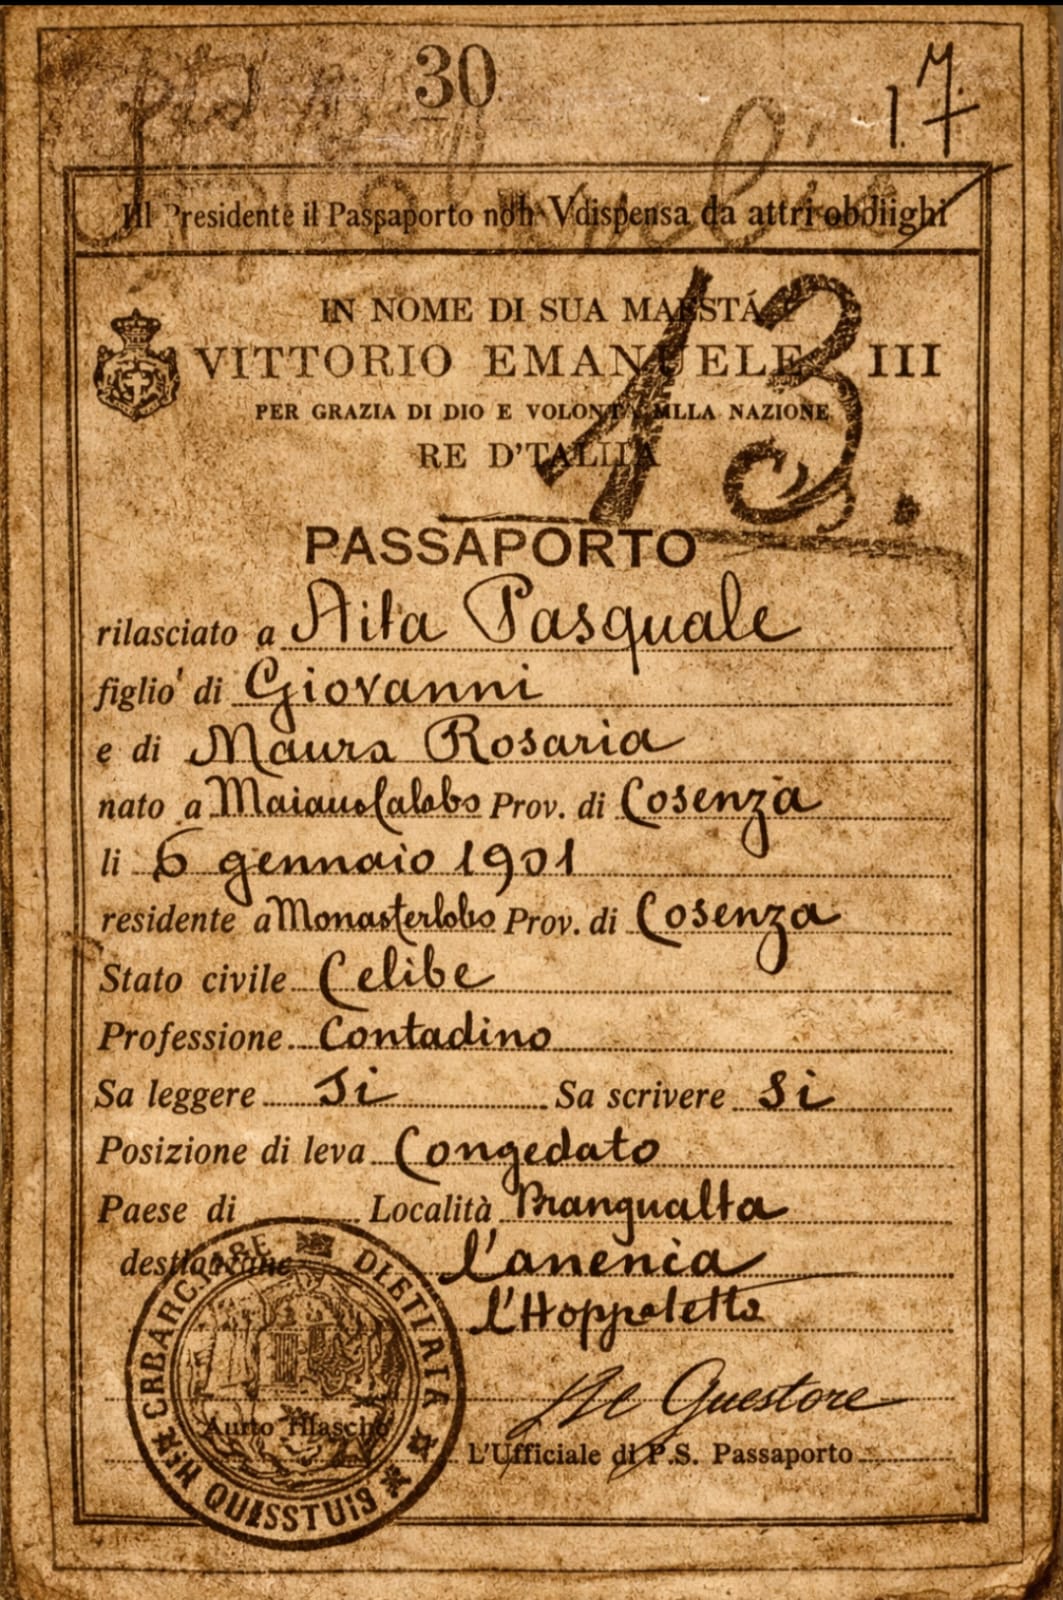 30
1. 7.
Ill Presidente il Passaporto noh Vdispensa da attri obdiighi
13.
IN NOME DI SUA MAESTÁ
VITTORIO EMANUELE III
PER GRAZIA DI DIO E VOLONTA MLLA NAZIONE
RE D'TALIIA
PASSAPORTO
rilasciato a Aita Pasquale
figlio' di Giovanni
e di Maura Rosaria
nato a Maiauolalobo Prov. di Cosenza
li 6 gennaio 1901
residente a Monasterlobo Prov. di Cosenza
Stato civile Celibe
Professione Contadino
Sa leggere Si Sa scrivere Si
Posizione di leva Congedato
Paese di Località Prangualta
l'anenia
l'Hoppoletto
Questore
L'Ufficiale di P.S. Passaporto
CRBARC DLETIRIA
QUISSTUIS